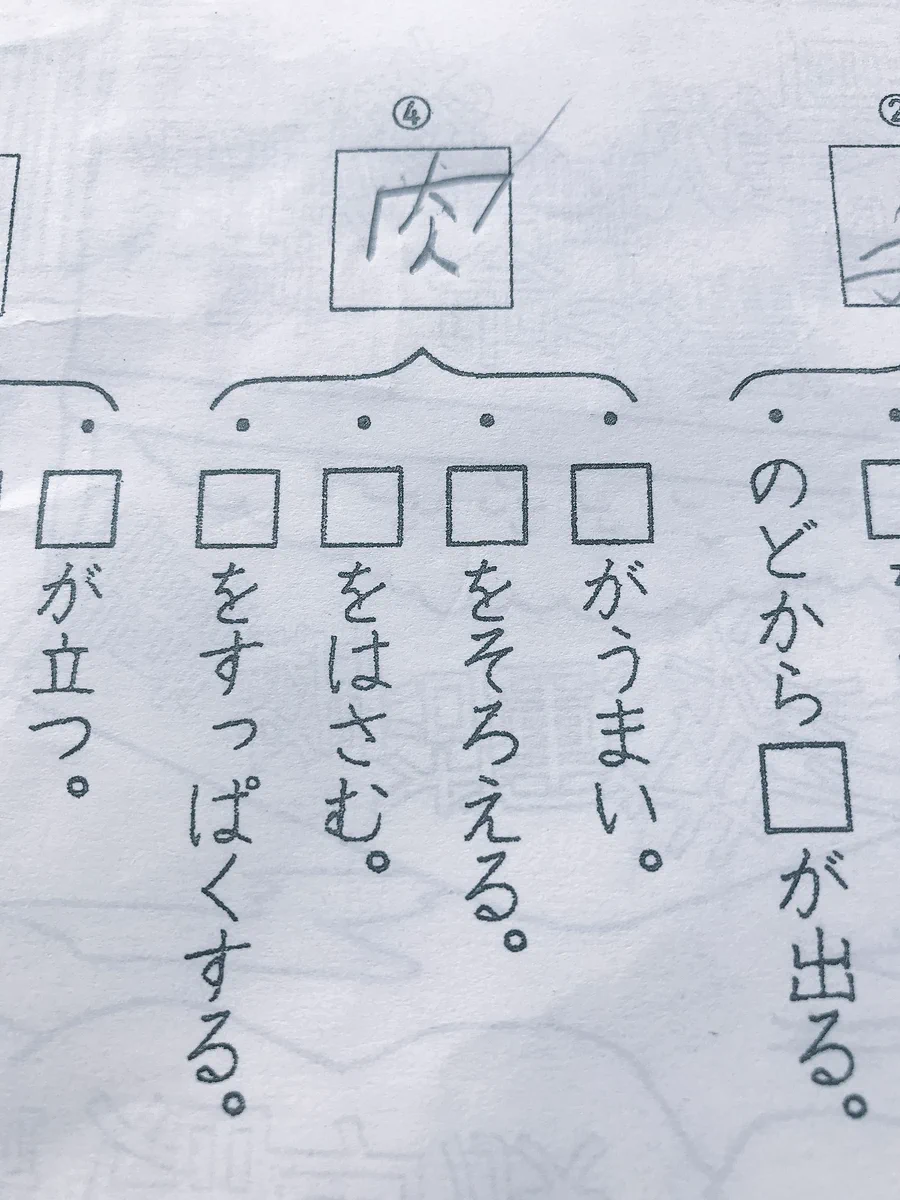 ②
・のどから□が出る。
④
肉
・□がうまい。
・□をそろえる。
・□をはさむ。
・□をすっぱくする。
・□が立つ。